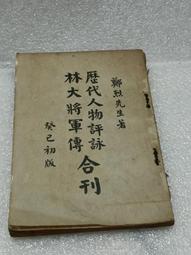 鄭烈先生著
歷代人物評詠
林大將軍傳
合刊
癸巳初版